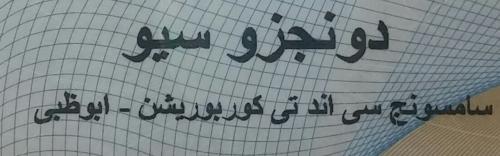 دونجزو سيو
سامسونج سى اند تى كوربوريشن - ابوظبى